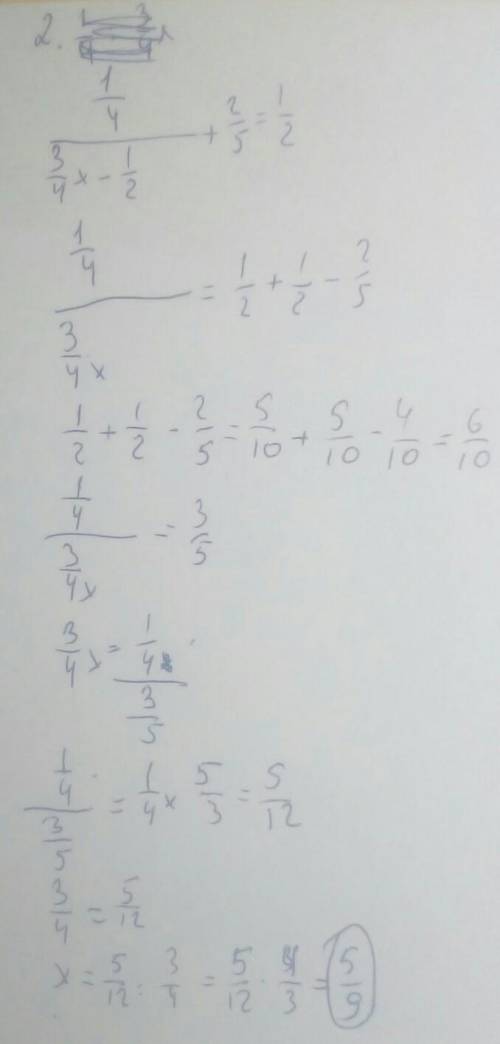 2.
1/4 / (3/4 x - 1/2) + 2/5 = 1/2
1/4 / (3/4 x) = 1/2 + 1/2 - 2/5
1/2 + 1/2 - 2/5 = 5/10 + 5/10 - 4/10 = 6/10
1/4 / (3/4 x) = 3/5
3/4 x = 1/4 / (3/5)
1/4 / (3/5) = 1/4 × 5/3 = 5/12
3/4 = 5/12
x = 5/12 : 3/4 = 5/12 · 4/3 = 5/9